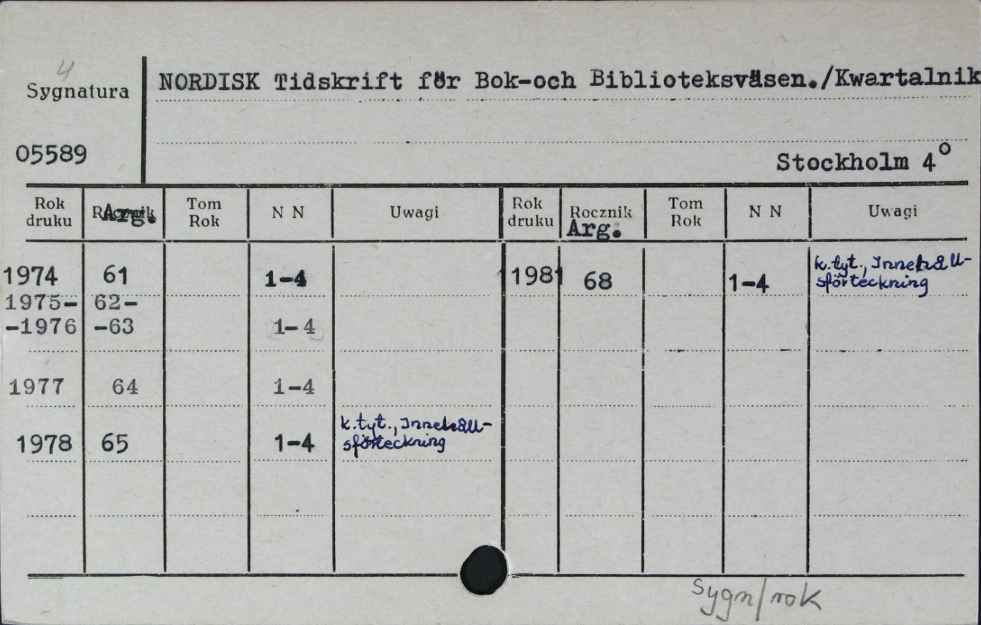 4
Sygnatura
NORDISK Tidskrift för Bok-och Biblioteksväsen./Kwartalnik
05589
Stockholm 4°
Rok druku Arg. Tom Rok N N Uwagi Rok druku Rocznik Arg. Tom Rok N N Uwagi
1974 61 1-4 1981 68 1-4 k.tyt., Innehåll-sförteckning
1975- 62-
-1976 -63 1-4
1977 64 1-4
1978 65 1-4 k.tyt., Innehåll-sförteckning
sygn/rok